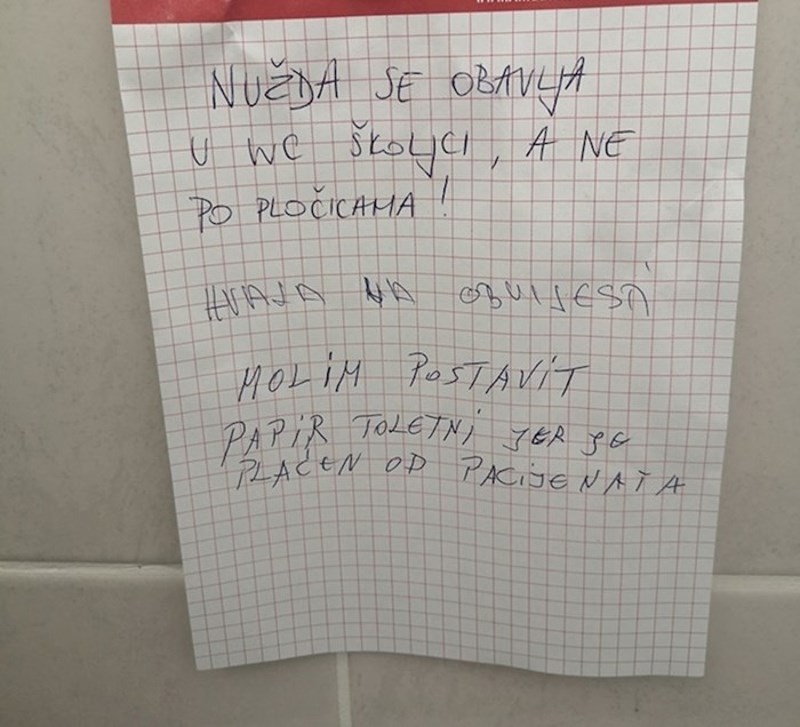 NUŽDA SE OBAVLJA
U WC ŠKOLJCI, A NE
PO PLOČICAMA!
HVALA NA OBVIJESTI
MOLIM POSTAVIT
PAPIR TOLETNI JER JE
PLAĆEN OD PACIJENATA